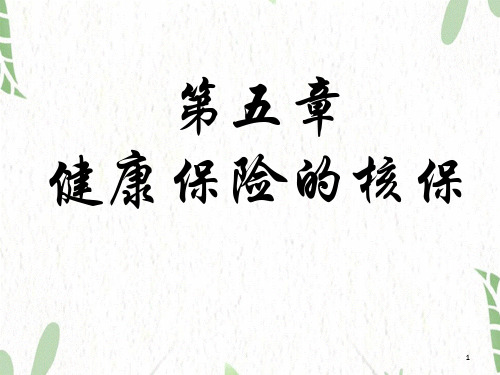 第五章
健康保险的核保
1